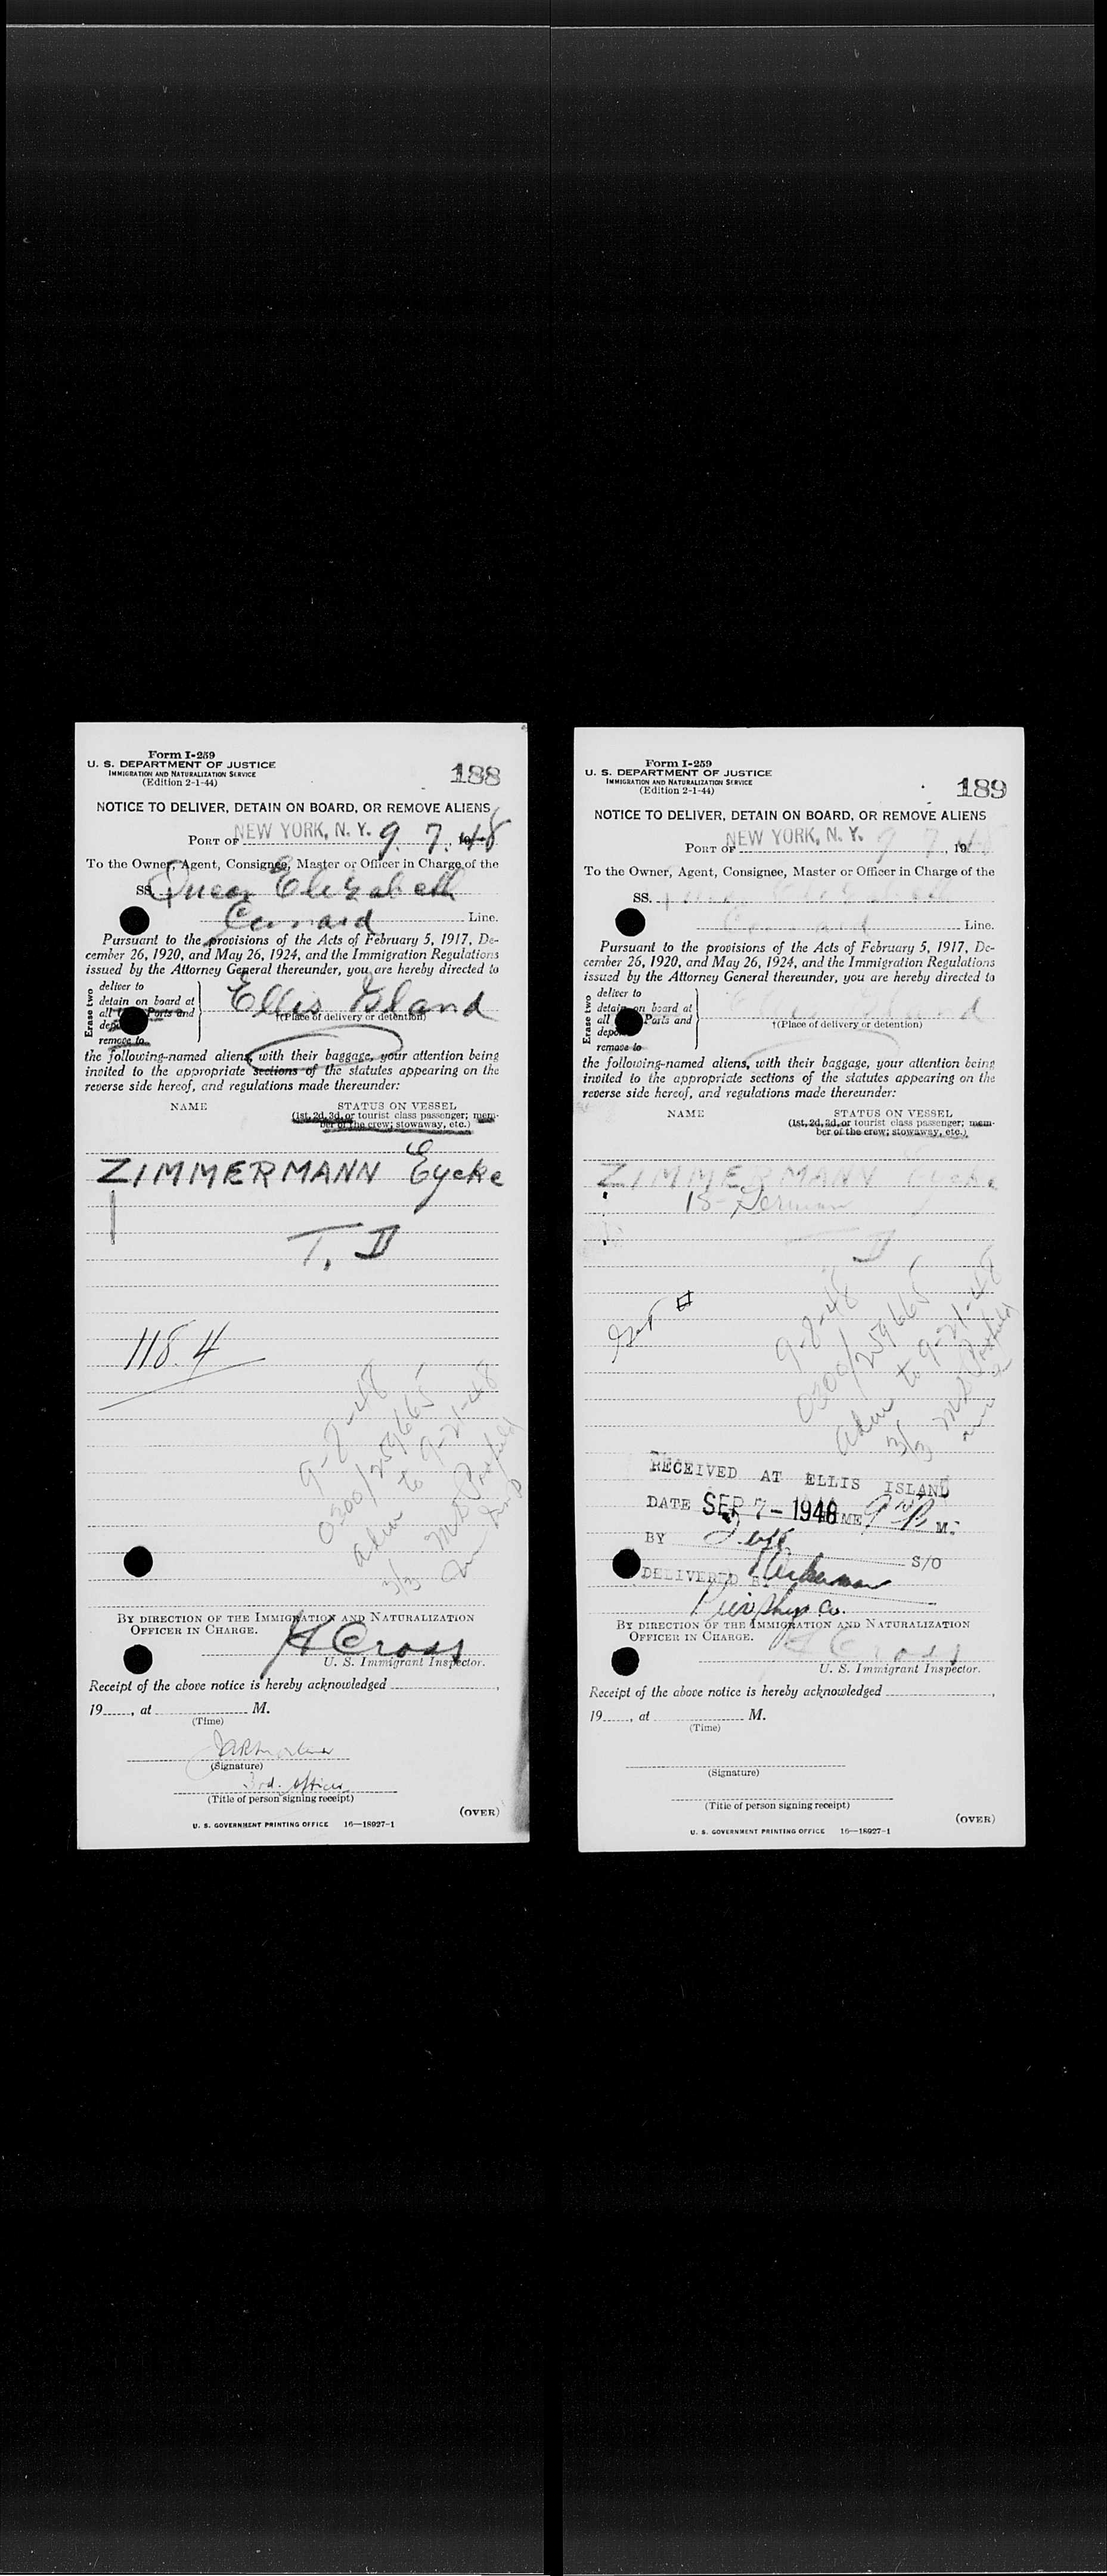 Form I-259
U. S. DEPARTMENT OF JUSTICE
IMMIGRATION AND NATURALIZATION SERVICE
(Edition 2-1-44)
188
NOTICE TO DELIVER, DETAIN ON BOARD, OR REMOVE ALIENS
PORT OF NEW YORK, N. Y. 9. 7. 1948
To the Owner, Agent, Consignee, Master or Officer in Charge of the
SS. Queen Elizabeth
Cunard Line.
Pursuant to the provisions of the Acts of February 5, 1917, De-
cember 26, 1920, and May 26, 1924, and the Immigration Regulations
issued by the Attorney General thereunder, you are hereby directed to
Erase two
deliver to
detain on board at
all Ports and
remove to
Ellis Island
†(Place of delivery or detention)
the following-named aliens, with their baggage, your attention being
invited to the appropriate sections of the statutes appearing on the
reverse side hereof, and regulations made thereunder:
NAME STATUS ON VESSEL
(1st, 2d, 3d, or tourist class passenger; mem-
ber of the crew; stowaway, etc.)
ZIMMERMANN Eycke
T. D
118.4
9-8-48
0300/259665
adm to 9-21-48
3/3
BY DIRECTION OF THE IMMIGRATION AND NATURALIZATION
OFFICER IN CHARGE.
H Cross
U. S. Immigrant Inspector.
Receipt of the above notice is hereby acknowledged ,
19 , at M.
(Time)
(Signature)
3rd. Officer
(Title of person signing receipt)
(OVER)
U. S. GOVERNMENT PRINTING OFFICE 16—18927-1
Form I-259
U. S. DEPARTMENT OF JUSTICE
IMMIGRATION AND NATURALIZATION SERVICE
(Edition 2-1-44)
189
NOTICE TO DELIVER, DETAIN ON BOARD, OR REMOVE ALIENS
PORT OF NEW YORK, N. Y. 9 7 , 1948
To the Owner, Agent, Consignee, Master or Officer in Charge of the
SS. Queen Elizabeth
Cunard Line.
Pursuant to the provisions of the Acts of February 5, 1917, De-
cember 26, 1920, and May 26, 1924, and the Immigration Regulations
issued by the Attorney General thereunder, you are hereby directed to
Erase two
deliver to
detain on board at
all Ports and
remove to
Ellis Island
†(Place of delivery or detention)
the following-named aliens, with their baggage, your attention being
invited to the appropriate sections of the statutes appearing on the
reverse side hereof, and regulations made thereunder:
NAME STATUS ON VESSEL
(1st, 2d, 3d, or tourist class passenger; mem-
ber of the crew; stowaway, etc.)
ZIMMERMANN Eycke
18- German
D
9-8-48
0300/259665
adm to 9-21-48
3/3
RECEIVED AT ELLIS ISLAND
DATE SEP 7 - 1948 TIME M.
BY S/O
DELIVERED BY
BY DIRECTION OF THE IMMIGRATION AND NATURALIZATION
OFFICER IN CHARGE.
H Cross
U. S. Immigrant Inspector.
Receipt of the above notice is hereby acknowledged ,
19 , at M.
(Time)
(Signature)
(Title of person signing receipt)
(OVER)
U. S. GOVERNMENT PRINTING OFFICE 16—18927-1